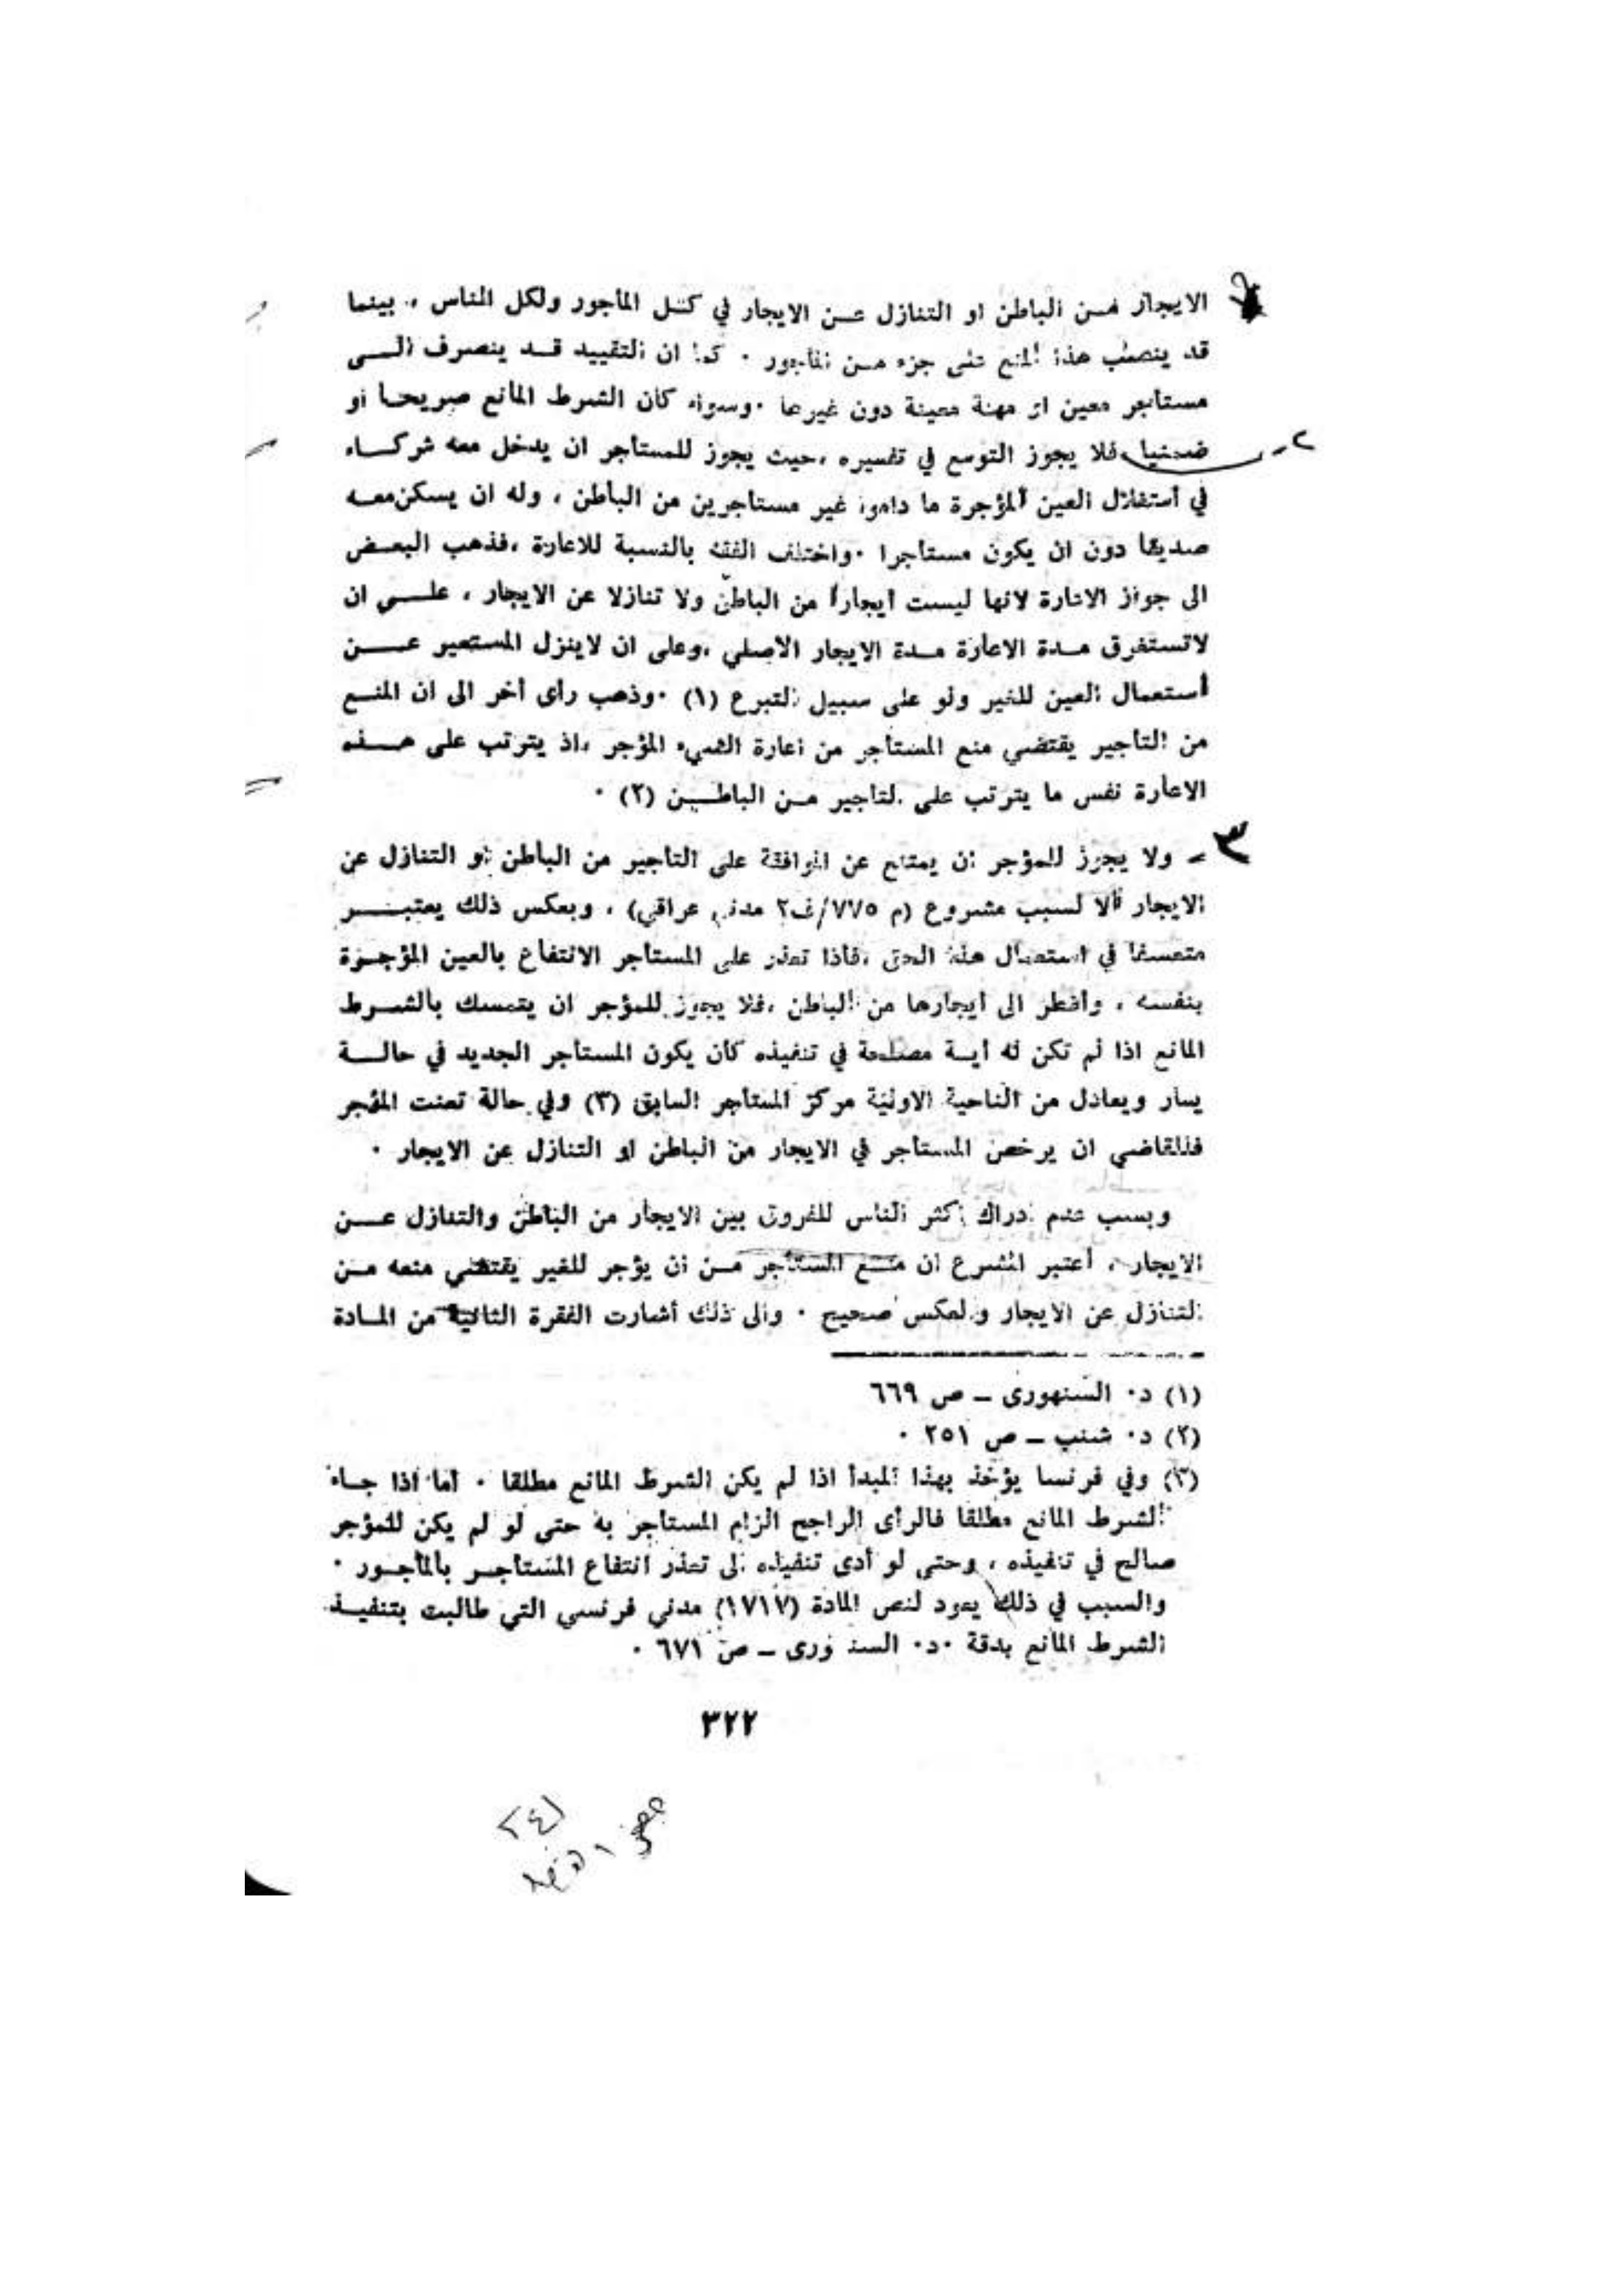 الايجار من الباطن او التنازل عـن الايجار في كـل المأجور ولكل الناس ، بينما
قد ينصب هذا المنع على جزء مـن المأجور ٠ كما ان التقييد قـد ينصرف الـى
مستأجر معين او مهنة معينة دون غيرها ٠وسواء كان الشرط المانع صريحـا أو
٢-
ضمنيا ،فلا يجوز التوسع في تفسيره ،حيث يجوز للمستأجر ان يدخل معه شركـاء
في أستغلال العين المؤجرة ما داموا غير مستأجرين من الباطن ، وله ان يسكن معـه
صديقا دون ان يكون مستأجرا ٠واختلف الفقه بالنسبة للاعارة ،فذهب البعـض
الى جواز الاعارة لانها ليست أيجاراً من الباطن ولا تنازلا عن الايجار ، علـى ان
لاتستغرق مـدة الاعارة مـدة الايجار الاصلي ،وعلى ان لاينزل المستعير عـن
أستعمال العين للغير ولو على سبيل التبرع (١) ٠وذهب رأى أخر الى ان المنـع
من التأجير يقتضي منع المستأجر من اعارة الشيء المؤجر ،اذ يترتب على هـذه
الاعارة نفس ما يترتب على التأجير مـن الباطـن (٢) ٠
٣
- ولا يجوز للمؤجر ان يمتنع عن الموافقة على التأجير من الباطن أو التنازل عن
الايجار الا لسبب مشروع (م ٧٧٥/ف٢ مدني عراقي) ، وبعكس ذلك يعتبـر
متعسفا في استعمال هذا الحق ،فاذا تعذر على المستأجر الانتفاع بالعين المؤجـرة
بنفسه ، وأضطر الى أيجارها من الباطن ،فلا يجوز للمؤجر ان يتمسك بالشـرط
المانع اذا لم تكن له أيـة مصلحة في تنفيذه كأن يكون المستأجر الجديد في حالـة
يسار ويعادل من الناحية مركز المستأجر السابق (٣) وفي حالة تعنت المؤجر
فللقاضي ان يرخص المستأجر في الايجار من الباطن او التنازل عن الايجار ٠
وبسبب عدم ادراك أكثر الناس للفروق بين الايجار من الباطن والتنازل عـن
الايجار ، أعتبر المشرع ان منـع المستأجر مـن ان يؤجر للغير يقتضي منعه مـن
التنازل عن الايجار والعكس صحيح ٠ والى ذلك أشارت الفقرة الثانية من المـادة
(١) د٠ السنهورى ــ ص ٦٦٩
(٢) د٠ شنب ــ ص ٢٥١ ٠
(٣) وفي فرنسا يؤخذ بهذا المبدأ اذا لم يكن الشرط المانع مطلقا ٠ أما اذا جـاء
الشرط المانع مطلقا فالرأى الراجح الزام المستأجر به حتى لو لم يكن للمؤجر
صالح في تنفيذه ، وحتى لو أدى تنفيذه الى تعذر انتفاع المستأجـر بالمأجـور ٠
والسبب في ذلك يعود لنص المادة (١٧١٧) مدني فرنسي التي طالبت بتنفيـذ
الشرط المانع بدقة ٠د٠ السنهورى ــ ص ٦٧١ ٠
٣٢٢